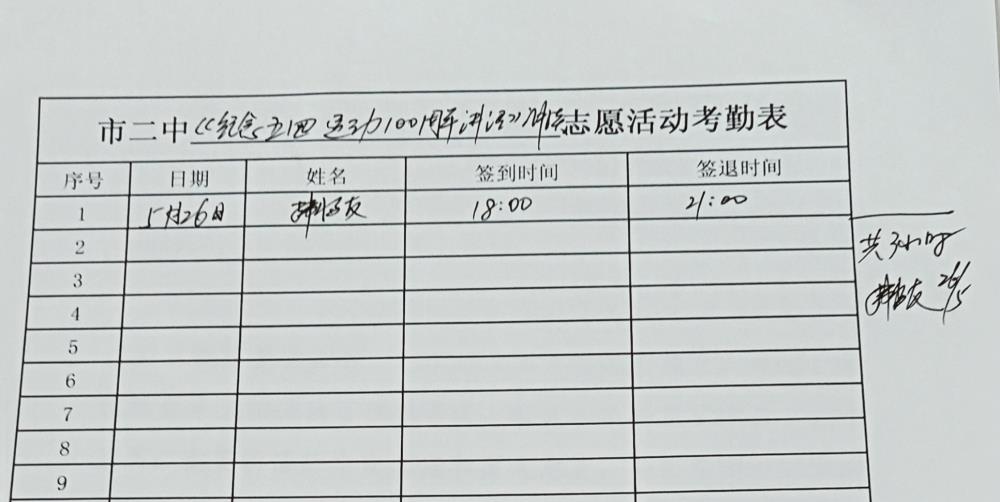 市二中《纪念五四运动100周年讲话》讲座志愿活动考勤表
序号 日期 姓名 签到时间 签退时间
1 5月26日 友 18:00 21:00
2
3
4
5
6
7
8
9
共3小时
友 26/5